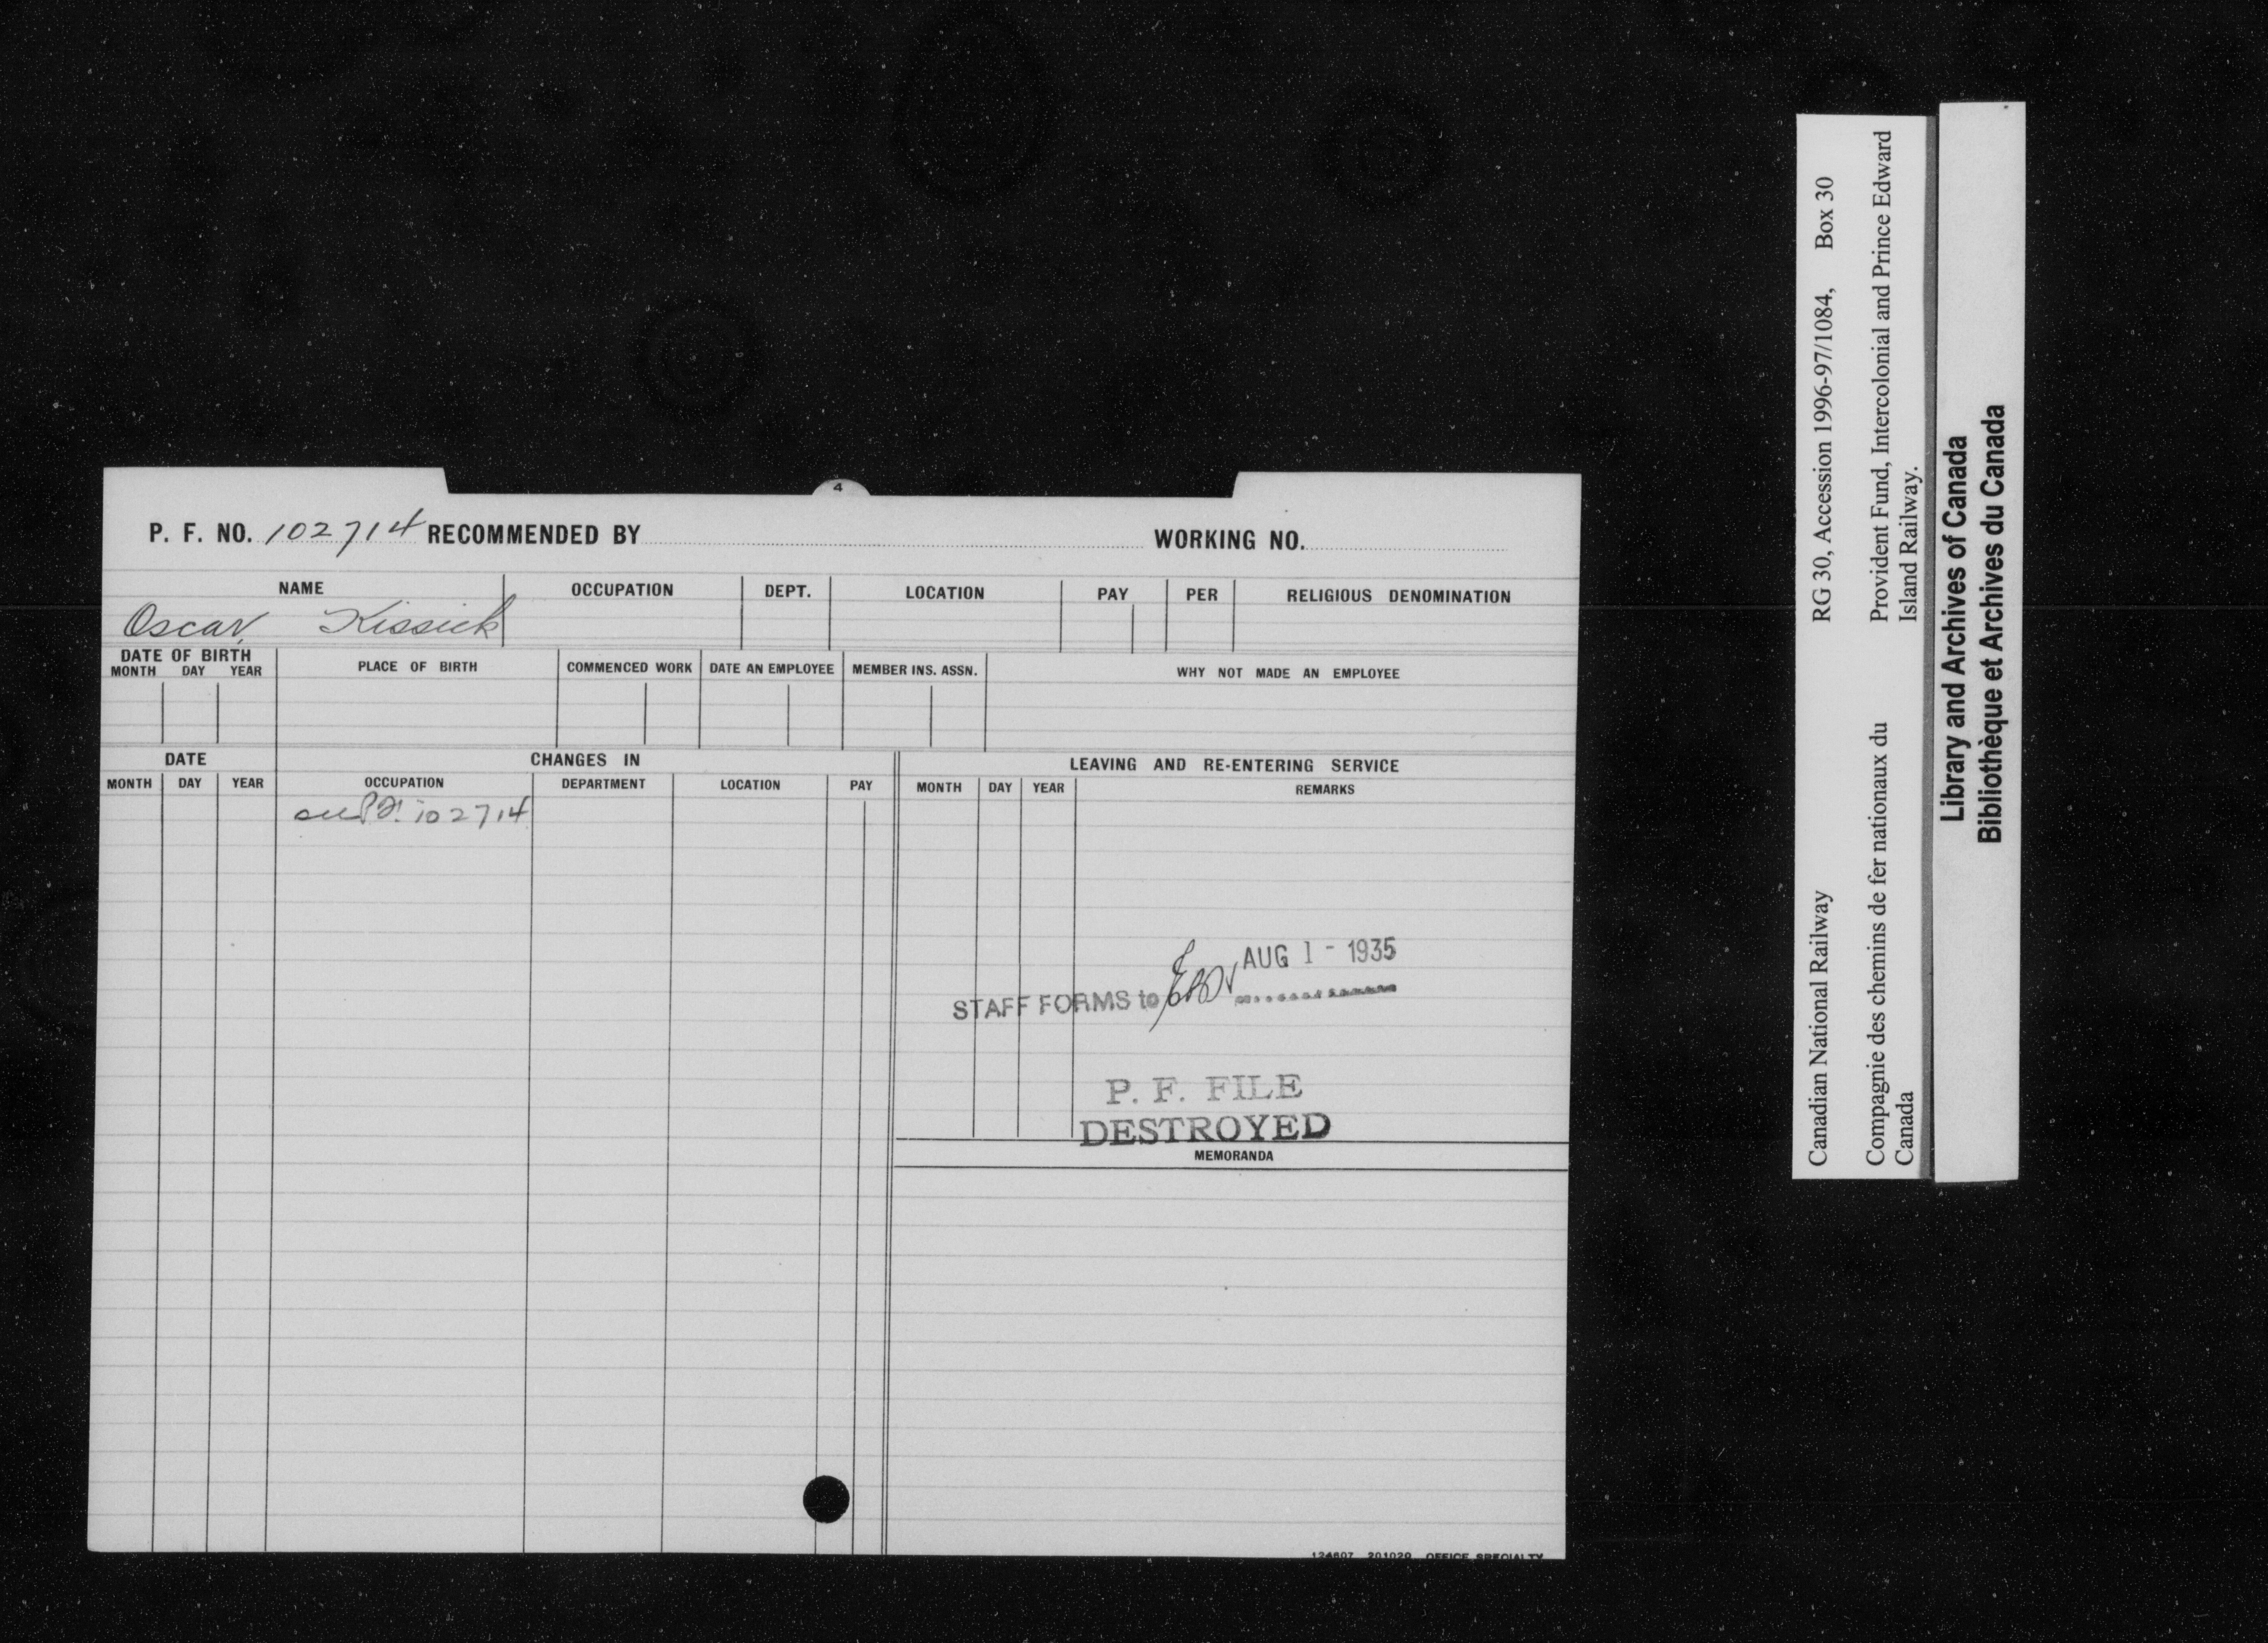 4
P. F. NO. 102714 RECOMMENDED BY WORKING NO.
NAME OCCUPATION DEPT. LOCATION PAY PER RELIGIOUS DENOMINATION
Oscar Kissick
DATE OF BIRTH
MONTH DAY YEAR PLACE OF BIRTH COMMENCED WORK DATE AN EMPLOYEE MEMBER INS. ASSN. WHY NOT MADE AN EMPLOYEE
DATE CHANGES IN LEAVING AND RE-ENTERING SERVICE
MONTH DAY YEAR OCCUPATION DEPARTMENT LOCATION PAY MONTH DAY YEAR REMARKS
see P.F. 102714
AUG 1 - 1935
STAFF FORMS to
P. F. FILE
DESTROYED
MEMORANDA
124607 201020 OFFICE SPECIALTY
Canadian National Railway RG 30, Accession 1996-97/1084, Box 30
Compagnie des chemins de fer nationaux du Provident Fund, Intercolonial and Prince Edward
Canada Island Railway.
Library and Archives of Canada
Bibliothèque et Archives du Canada